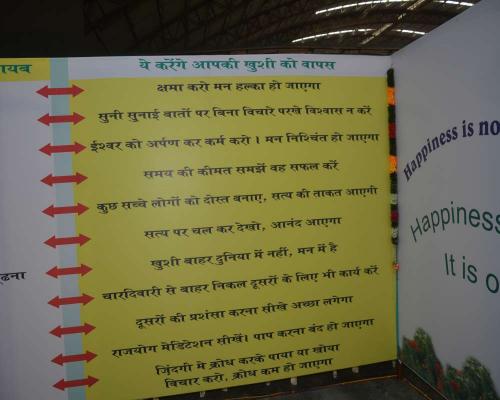 ायब
ये करेंगे आपकी खुशी को वापस
क्षमा करो मन हल्का हो जाएगा
सुनी सुनाई बातों पर बिना विचारे परखे विश्वास न करें
ईश्वर को अर्पण कर कर्म करो । मन निश्चिंत हो जाएगा
समय की कीमत समझें वह सफल करें
कुछ सच्चे लोगों को दोस्त बनाए, सत्य की ताकत आएगी
सत्य पर चल कर देखो, आनंद आएगा
खुशी बाहर दुनिया में नहीं, मन में है
चारदिवारी से बाहर निकल दूसरों के लिए भी कार्य करें
दूसरों की प्रशंसा करना सीखे अच्छा लगेगा
राजयोग मेडिटेशन सीखें। पाप करना बंद हो जाएगा
जिंदगी मे क्रोध करके पाया या खोया
विचार करो, क्रोध कम हो जाएगा
ढना
Happiness is no
Happiness
It is o